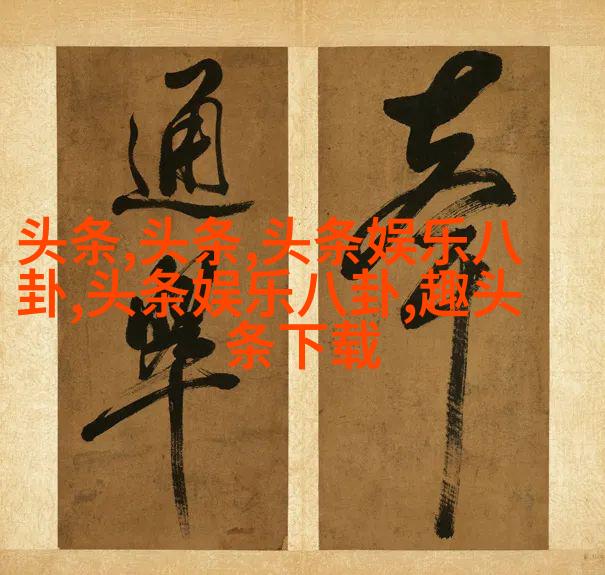 通
头条,头条,头条娱乐八
卦,头条娱乐八卦,趣头
条下载